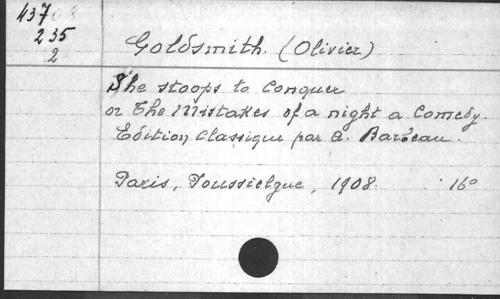 43708
235
2
Goldsmith. (Olivier)
She stoops to Conquer
or The Mistakes of a night a Comedy.
Edition Classique par A. Barbeau.
Paris, Poussielgue, 1908. 16°